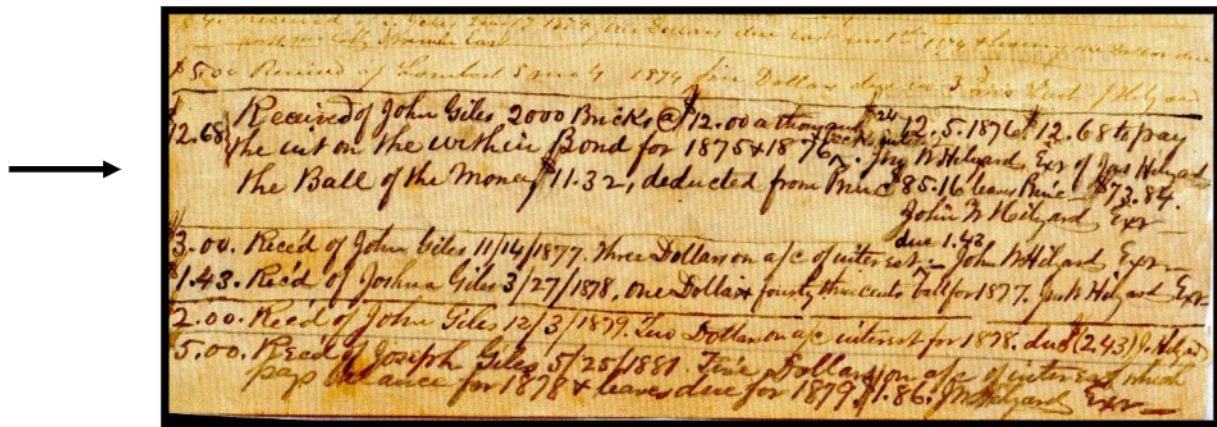 $4. Received of J. Giles 1874 four Dollars due last 1874 & leaving one Dollar due
$5.00 Received of 5 4 1874 five Dollars due Hilyard
$12.68 Received of John Giles 2000 Bricks @ $12.00 a thousand $24 12.5.1876. $12.68 to pay
the int on the within Bond for 1875 & 1876. Jno W Hilyard Exr of Jas Hilyard
the Ball of the Money $11.32, deducted from Princ $85.16 leaves Princ $73.84.
John W Hilyard Exr
due 1.43
$3.00. Rec'd of John Giles 11/14/1877. three Dollars on a/c of interest:- John W Hilyard Exr
$1.43. Rec'd of Joshua Giles 3/27/1878, one Dollar & fourty three cents ball for 1877. Jno W Hilyard Exr
2.00. Rec'd of John Giles 12/3/1879. Two Dollars on a/c interest for 1878. due $(2.43) J. Hilyard
$5.00. Rec'd of Joseph Giles 5/25/1881. Five Dollars on a/c of interest which
pays balance for 1878 & leaves due for 1879. $1.86. Jn Hilyard Exr